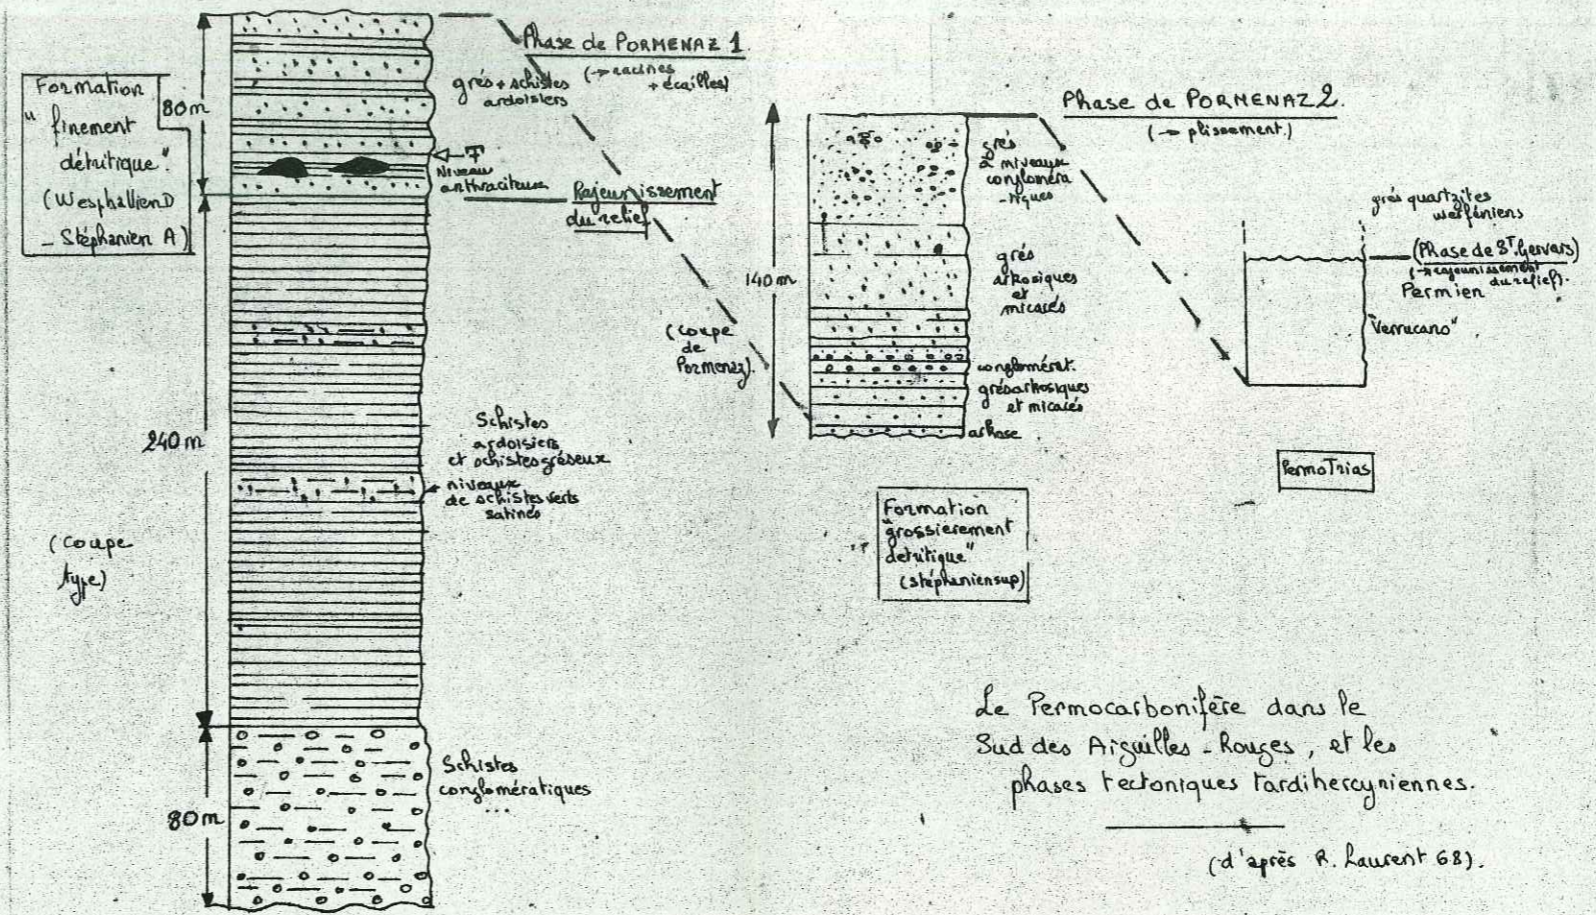 Formation
" finement
détritique"
(Wesphalien D
- Stéphanien A)
80m
240m
(Coupe
type)
80m
Phase de PORMENAZ 1.
(→ racines
+ écailles)
grés + schistes
ardoisiers
Niveau
anthraciteux
Rajeunissement
du relief
Schistes
ardoisiers
et schistes gréseux
niveaux
de schistes verts
satinés
Schistes
conglomératiques
...
140m
(Coupe
de
Pormenaz).
Phase de PORMENAZ 2.
(→ plissement.)
grés
à niveaux
congloméra
-tiques
grés
arkosiques
et
micacés
conglomérat.
grés arkosiques
et micacés
arkose
Formation
"grossierement
detritique"
(stéphanien sup)
grés quartzites
werféniens
(Phase de St. Gervais)
(→ rajeunissement
du relief).
Permien
"Verrucano"
PermoTrias
Le Permocarbonifère dans le
Sud des Aiguilles-Rouges, et les
phases tectoniques tardihercyniennes.
(d'après R. Laurent 68).